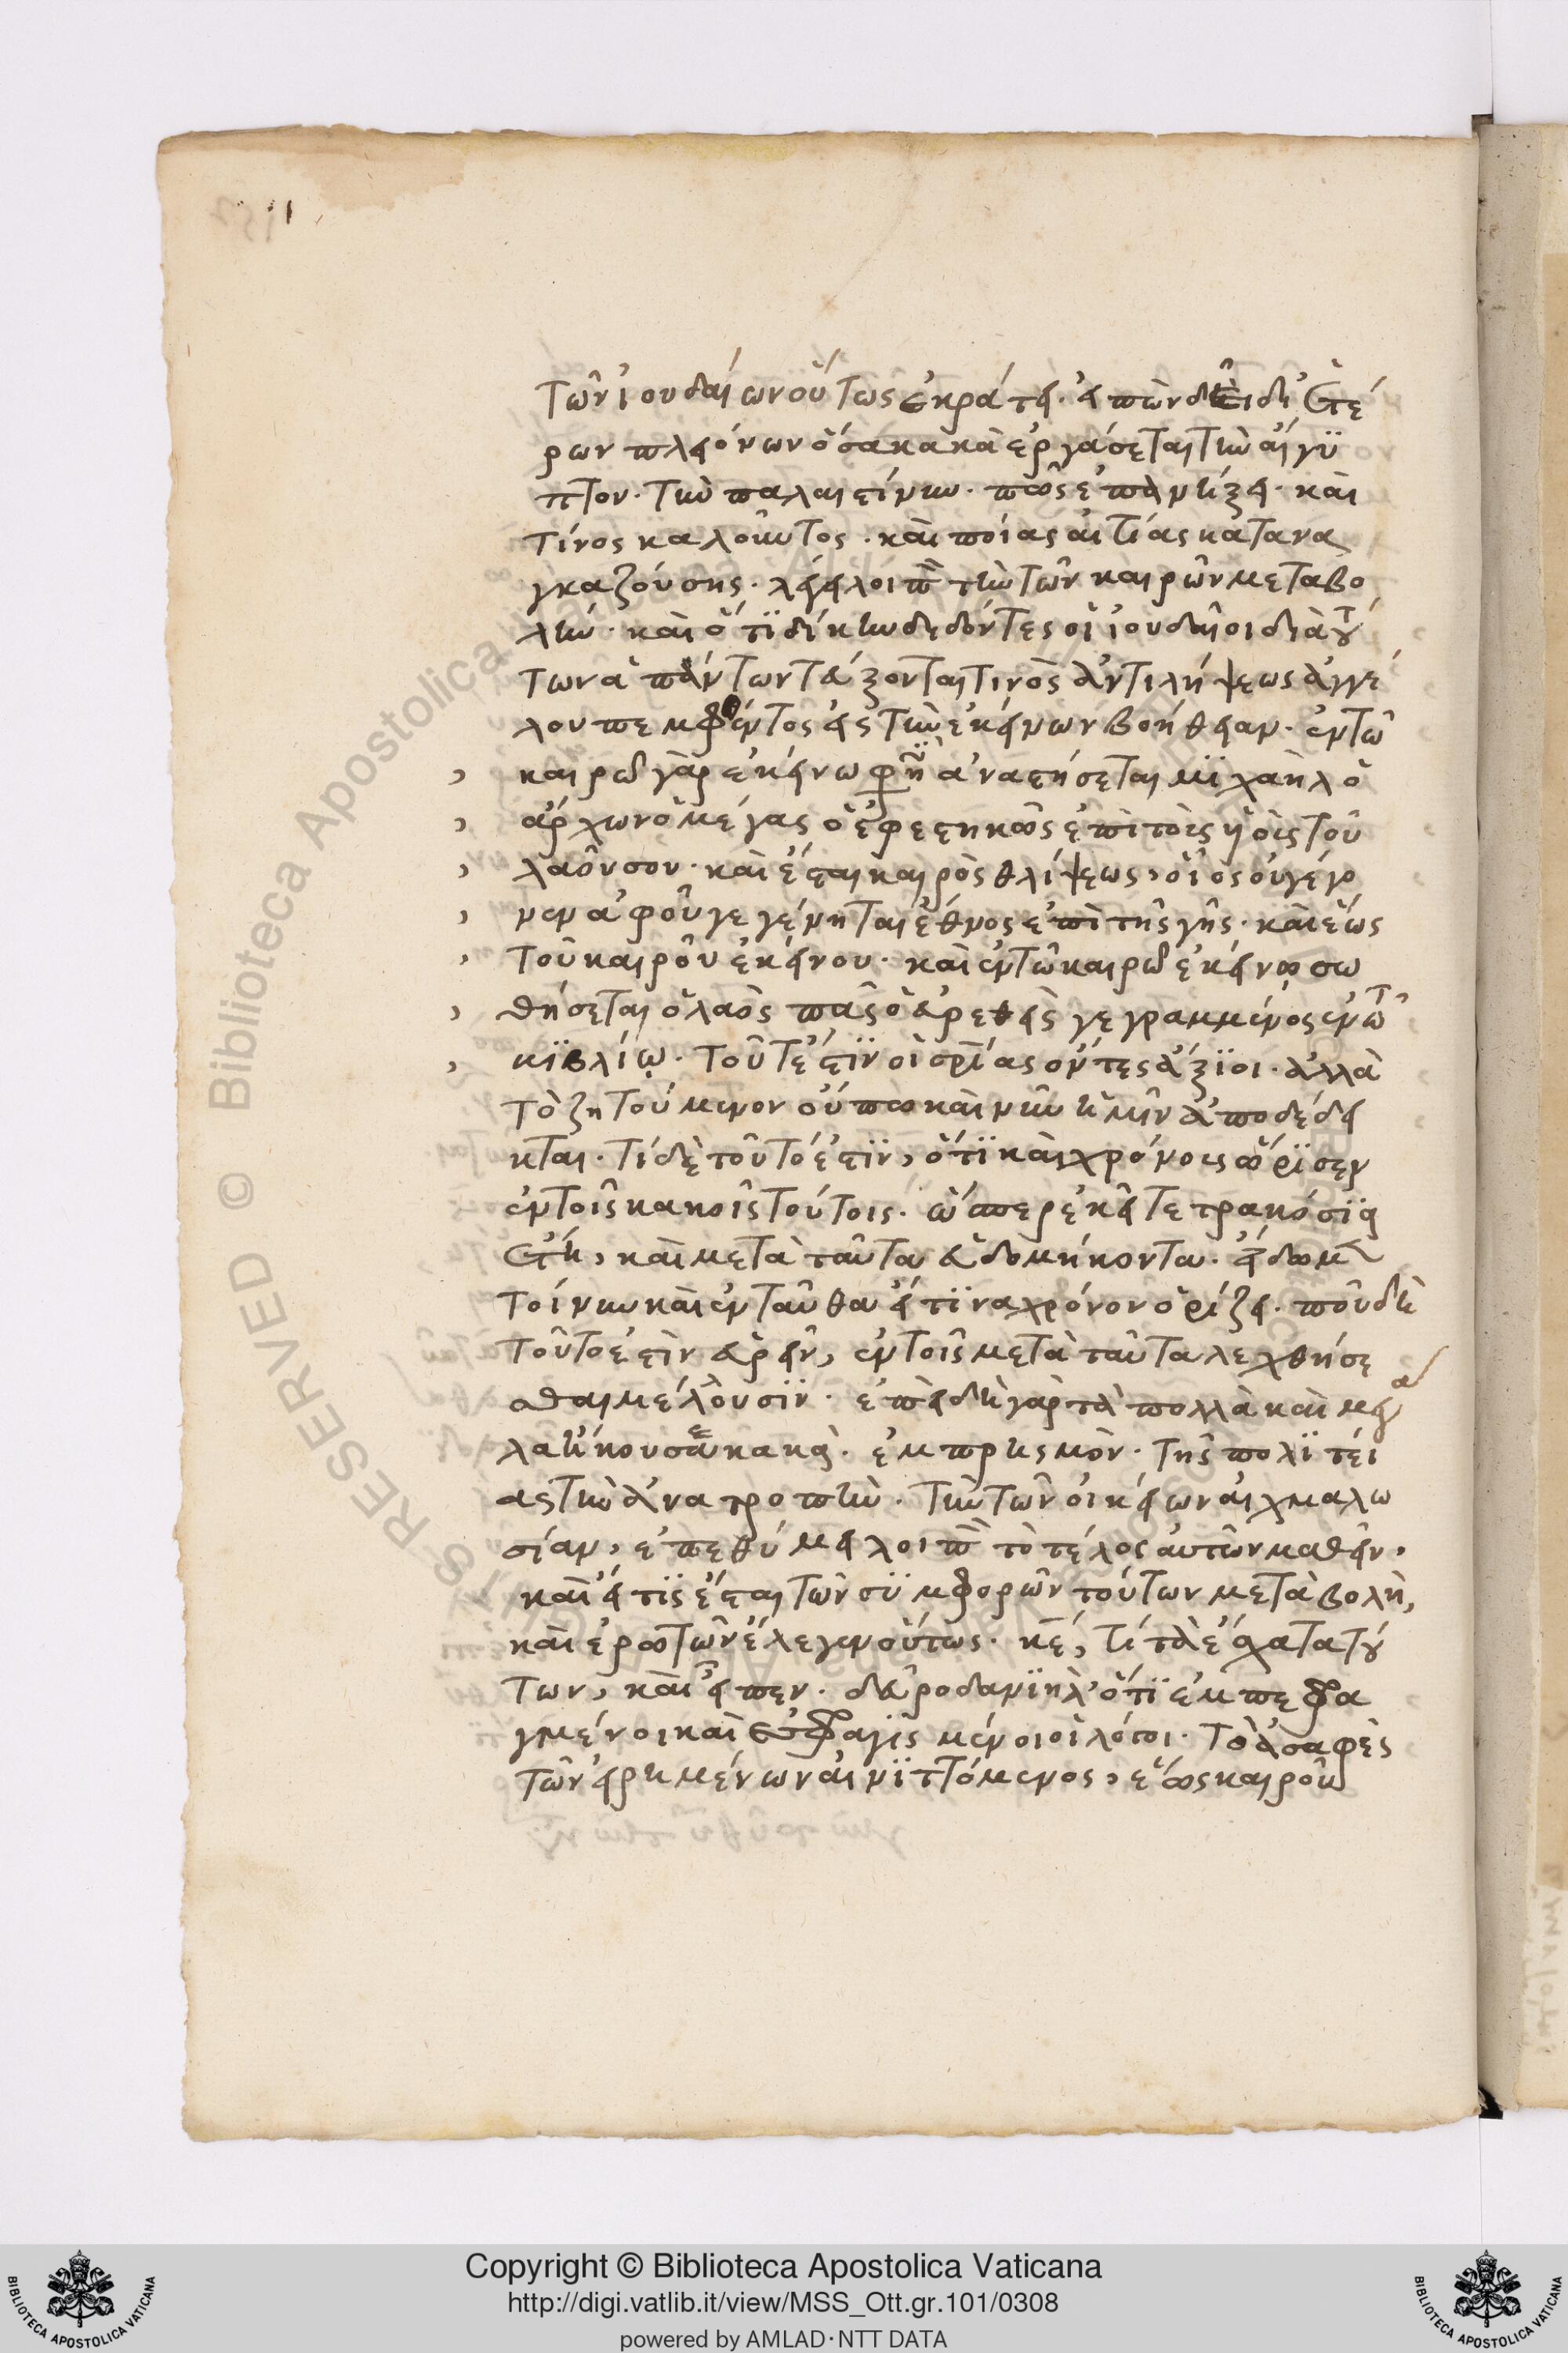 τῶν ἰουδαίων οὕτως ἐκράτει. εἰπὼν δὲ καὶ δι ἑτέ
ρων πλειόνων ὅσα κακὰ ἐργάσεται τὴν αἴγυ
πτον. τὴν παλαιστίνην. πῶς ἐπανήξει. καὶ
τίνος καλοῦντος. καὶ ποίας αἰτίας κατανα
γκαζούσης. λέγει λοιπὸν τὴν τῶν καιρῶν μεταβο
λήν. καὶ ὅτι δίκην δεδόντες οἱ ἰουδαῖοι διὰ τού
των ἁπάντων τεύξονται τινὸς ἀντιλήψεως ἀγγέ
λου πεμφθέντος εἰς τὴν ἐκείνων βοήθειαν. ἐν τῶ
καιρῶ γὰρ ἐκείνω φησὶν ἀναστήσεται μιχαὴλ ὁ
ἄρχων ὁ μέγας ὁ ἐφεστηκὼς ἐπὶ τοῖς υἱοῖς τοῦ
λαοῦ σου. καὶ ἔσται καιρὸς θλίψεως, οἷος οὐ γέγο
νεν ἀφ οὗ γεγένηται ἔθνος ἐπὶ τῆς γῆς. καὶ ἕως
τοῦ καιροῦ ἐκείνου. καὶ ἐν τῶ καιρῶ ἐκείνω σω
θήσεται ὁ λαὸς πᾶς ὁ εὑρεθεὶς γεγραμμένος ἐν τῶ
βιβλίῳ. τοῦτέστιν οἱ σρίας ὄντες ἄξιοι. ἀλλὰ
τὸ ζητούμενον οὔπω καὶ νῦν ἡμῖν ἀποδέδει
κται. τί δὲ τοῦτό ἐστιν, ὅτι καὶ χρόνοις ὥρισεν
ἐν τοῖς κακοῖς τούτοις. ὥσπερ ἐκεῖ τετρακόσια
ἔτη, καὶ μετὰ ταῦτα ἑβδομήκοντα. ἴδωμεν
τοίνυν καὶ ἐνταῦθα εἴ τινα χρόνον ὁρίζει. ποῦ δὴ
τοῦτο ἐστὶν εὑρεῖν, ἐν τοῖς μετὰ ταῦτα λεχθήσε
σθαι μέλλουσιν. ἐπειδὴ γὰρ τὰ πολλὰ καὶ μεγά
λα ἤκουσεν κακά. ἐμπρησμὸν. τῆς πολιτεί
ας τὴν ἀνατροπὴν. τὴν τῶν οἰκείων αἰχμαλω
σίαν, ἐπεθύμει λοιπὸν τὸ τέλος αὐτῶν μαθεῖν,
καὶ εἴ τις ἔσται τῶν συμφορῶν τούτων μεταβολὴ,
καὶ ἐρωτῶν ἔλεγεν οὕτως. κε, τί τὰ ἔσχατα τού
των, καὶ εἶπεν. δεῦρο δανιὴλ ὅτι ἐμπεφρα
γμένοι καὶ ἐσφραγισμένοι οἱ λόγοι. τὸ ἀσαφὲς
τῶν εἰρημένων αἰνιττόμενος, ἕως καιροῦ
Copyright © Biblioteca Apostolica Vaticana
http://digi.vatlib.it/view/MSS_Ott.gr.101/0308
powered by AMLAD·NTT DATA